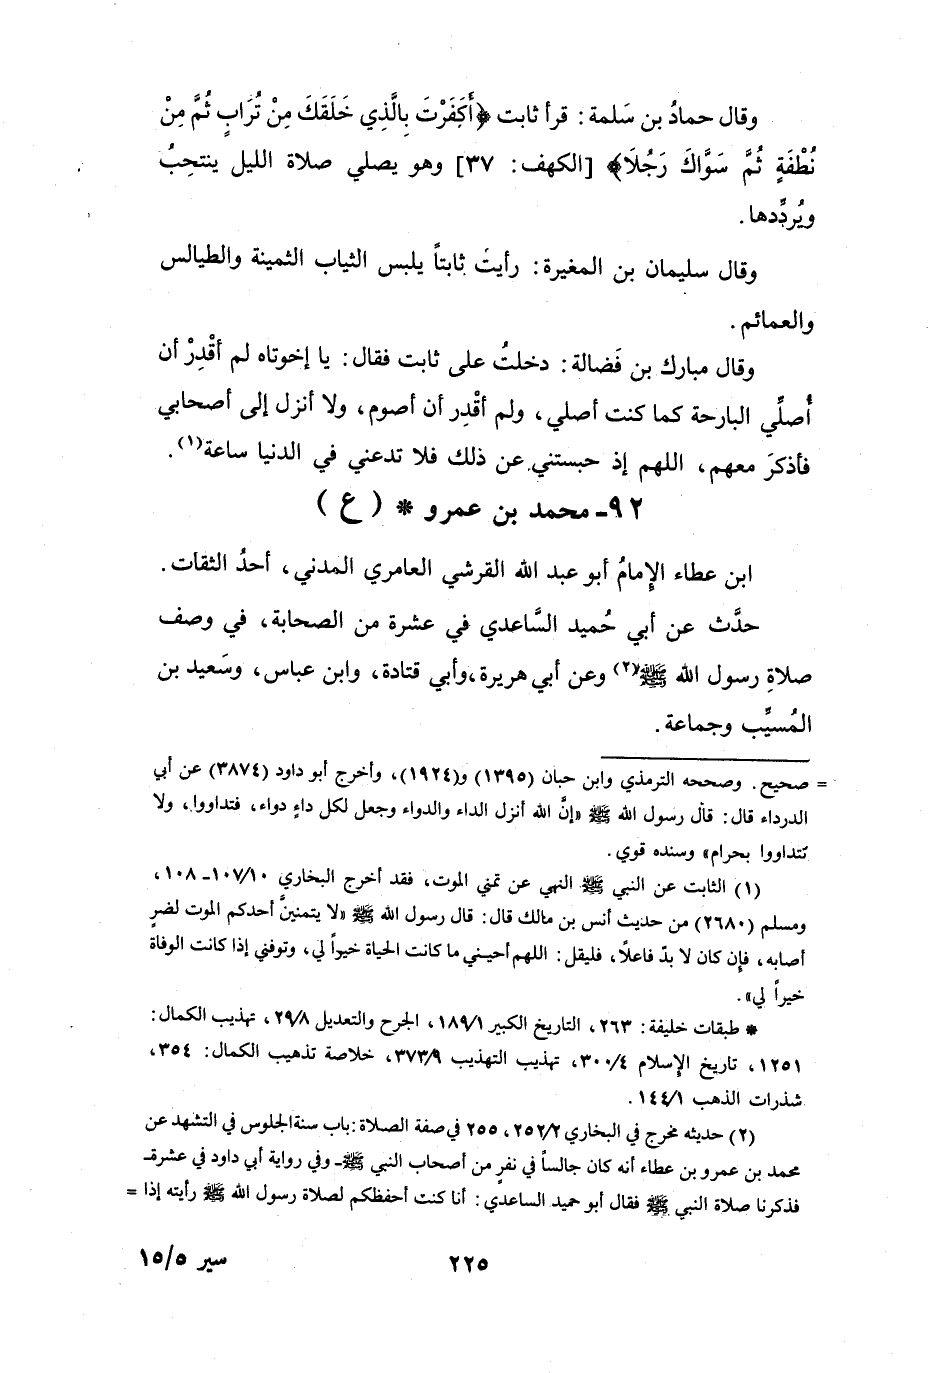 وقال حمادُ بن سَلمة: قرأ ثابت ﴿أَكَفَرْتَ بِالَّذِي خَلَقَكَ مِنْ تُرَابٍ ثُمَّ مِنْ
نُطْفَةٍ ثُمَّ سَوَّاكَ رَجُلاً﴾ [الكهف: ٣٧] وهو يصلي صلاة الليل ينتحِبُ
ويُردِّدها.
وقال سليمان بن المغيرة: رأيتُ ثابتاً يلبس الثياب الثمينة والطيالس
والعمائم.
وقال مبارك بن فَضالة: دخلتُ على ثابت فقال: يا إخوتاه لم أقْدِرْ أن
أُصلِّي البارحة كما كنت أصلي، ولم أقْدِر أن أصوم، ولا أنزل إلى أصحابي
فأذكرَ معهم، اللهم إذ حبستني عن ذلك فلا تدعني في الدنيا ساعة(١).
٩٢- محمد بن عمرو * (ع)
ابن عطاء الإمامُ أبو عبد الله القرشي العامري المدني، أحدُ الثقات.
حدَّث عن أبي حُميد السَّاعدي في عشرة من الصحابة، في وصف
صلاةِ رسول الله ﷺ(٢) وعن أبي هريرة، وأبي قتادة، وابن عباس، وسَعيد بن
المُسيِّب وجماعة.
= صحيح. وصححه الترمذي وابن حبان (١٣٩٥) و(١٩٢٤)، وأخرج أبو داود (٣٨٧٤) عن أبي
الدرداء قال: قال رسول الله ﷺ «إنَّ الله أنزل الداء والدواء وجعل لكل داءٍ دواء، فتداووا، ولا
تتداووا بحرام» وسنده قوي.
(١) الثابت عن النبي ﷺ النهي عن تمني الموت، فقد أخرج البخاري ١٠٧/١٠- ١٠٨،
ومسلم (٢٦٨٠) من حديث أنس بن مالك قال: قال رسول الله ﷺ «لا يتمنينَّ أحدكم الموت لضرٍ
أصابه، فإن كان لا بدّ فاعلاً، فليقل: اللهم أحيني ما كانت الحياة خيراً لي، وتوفني إذا كانت الوفاة
خيراً لي».
* طبقات خليفة: ٢٦٣، التاريخ الكبير ١٨٩/١، الجرح والتعديل ٢٩/٨، تهذيب الكمال:
١٢٥١، تاريخ الإسلام ٣٠٠/٤، تهذيب التهذيب ٣٧٣/٩، خلاصة تذهيب الكمال: ٣٥٤،
شذرات الذهب ١٤٤/١.
(٢) حديثه مخرج في البخاري ٢٥٢/٢، ٢٥٥ في صفة الصلاة: باب سنة الجلوس في التشهد عن
محمد بن عمرو بن عطاء أنه كان جالساً في نفرٍ من أصحاب النبي ﷺ- وفي رواية أبي داود في عشرة-
فذكرنا صلاة النبي ﷺ فقال أبو حميد الساعدي: أنا كنت أحفظكم لصلاة رسول الله ﷺ رأيته إذا =
٢٢٥
سير ١٥/٥